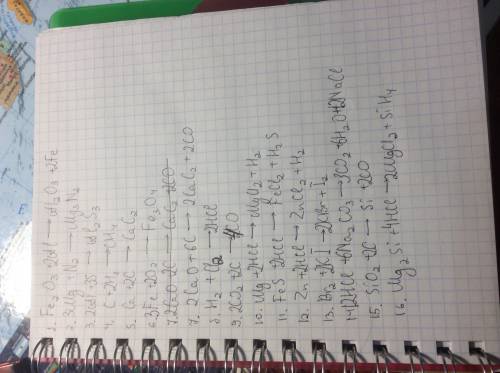 1. Fe2O3 + 2Al → Al2O3 + 2Fe
2. 3Mg + N2 → Mg3N2
3. 2Al + 3S → Al2S3
4. C + 2H2 → CH4
5. Ca + 2C → CaC2
6. 3Fe + 2O2 → Fe3O4
7. 2CaO + 6C → 2CaC2 + 2CO
8. H2 + Cl2 → 2HCl
9. 2C
10. Mg + 2HCl → MgCl2 + H2
11. FeS + 2HCl → FeCl2 + H2S
12. Zn + 2HCl → ZnCl2 + H2
13. Br2 + 2KI → 2KBr + I2
14. 12HCl + 6Na2CO3 → 3CO2 + 6H2O + 12NaCl
15. SiO2 + 2C → Si + 2CO
16. Mg2Si + 4HCl → 2MgCl2 + SiH4